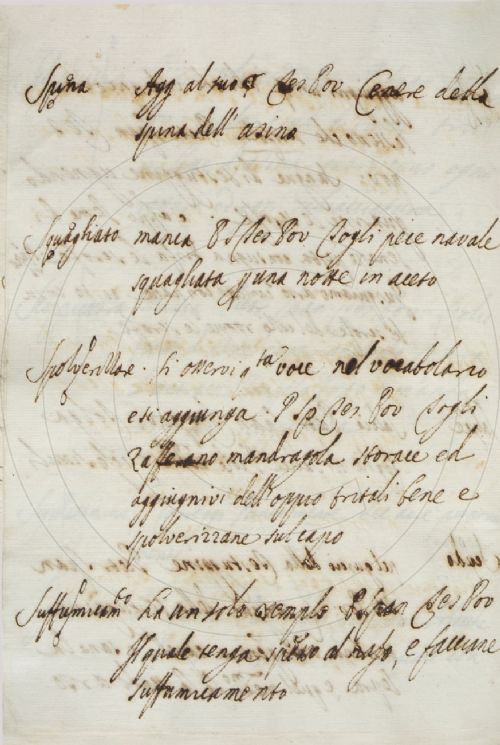 Spina Agg al suo § Tes Pov Cenere della
spina dell'asino
Squagliato manca P S Tes Pov Togli pece navale
squagliata p una notte in aceto
Spolverizzare. Si osservi q.ta voce nel vocabolario
e si aggiunga. P Sp Tes Pov Togli
Zafferano mandragola storace ed
aggiugnivi dell'oppio tritali bene e
spolverizzane sul capo
Suffumicam.to Ha un solo esemplo Tes Pov
Il quale tenga spesso al naso, e facciane
suffumicamento